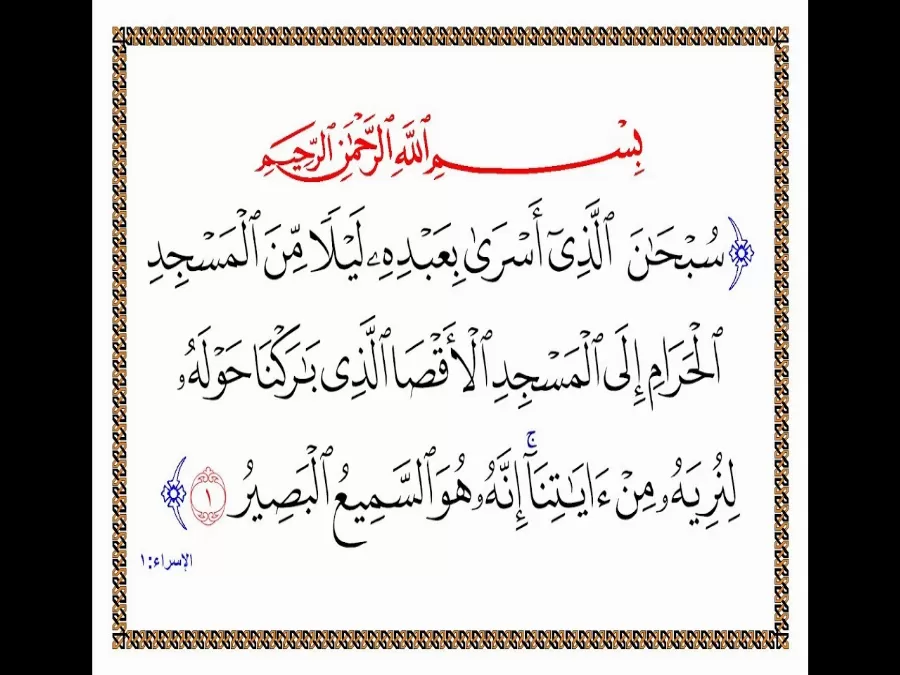 بِسْمِ ٱللَّهِ ٱلرَّحْمَٰنِ ٱلرَّحِيمِ
﴿سُبْحَٰنَ ٱلَّذِىٓ أَسْرَىٰ بِعَبْدِهِۦ لَيْلًا مِّنَ ٱلْمَسْجِدِ
ٱلْحَرَامِ إِلَى ٱلْمَسْجِدِ ٱلْأَقْصَا ٱلَّذِى بَٰرَكْنَا حَوْلَهُۥ
لِنُرِيَهُۥ مِنْ ءَايَٰتِنَآ ۚ إِنَّهُۥ هُوَ ٱلسَّمِيعُ ٱلْبَصِيرُ ١﴾
الإسراء: ١